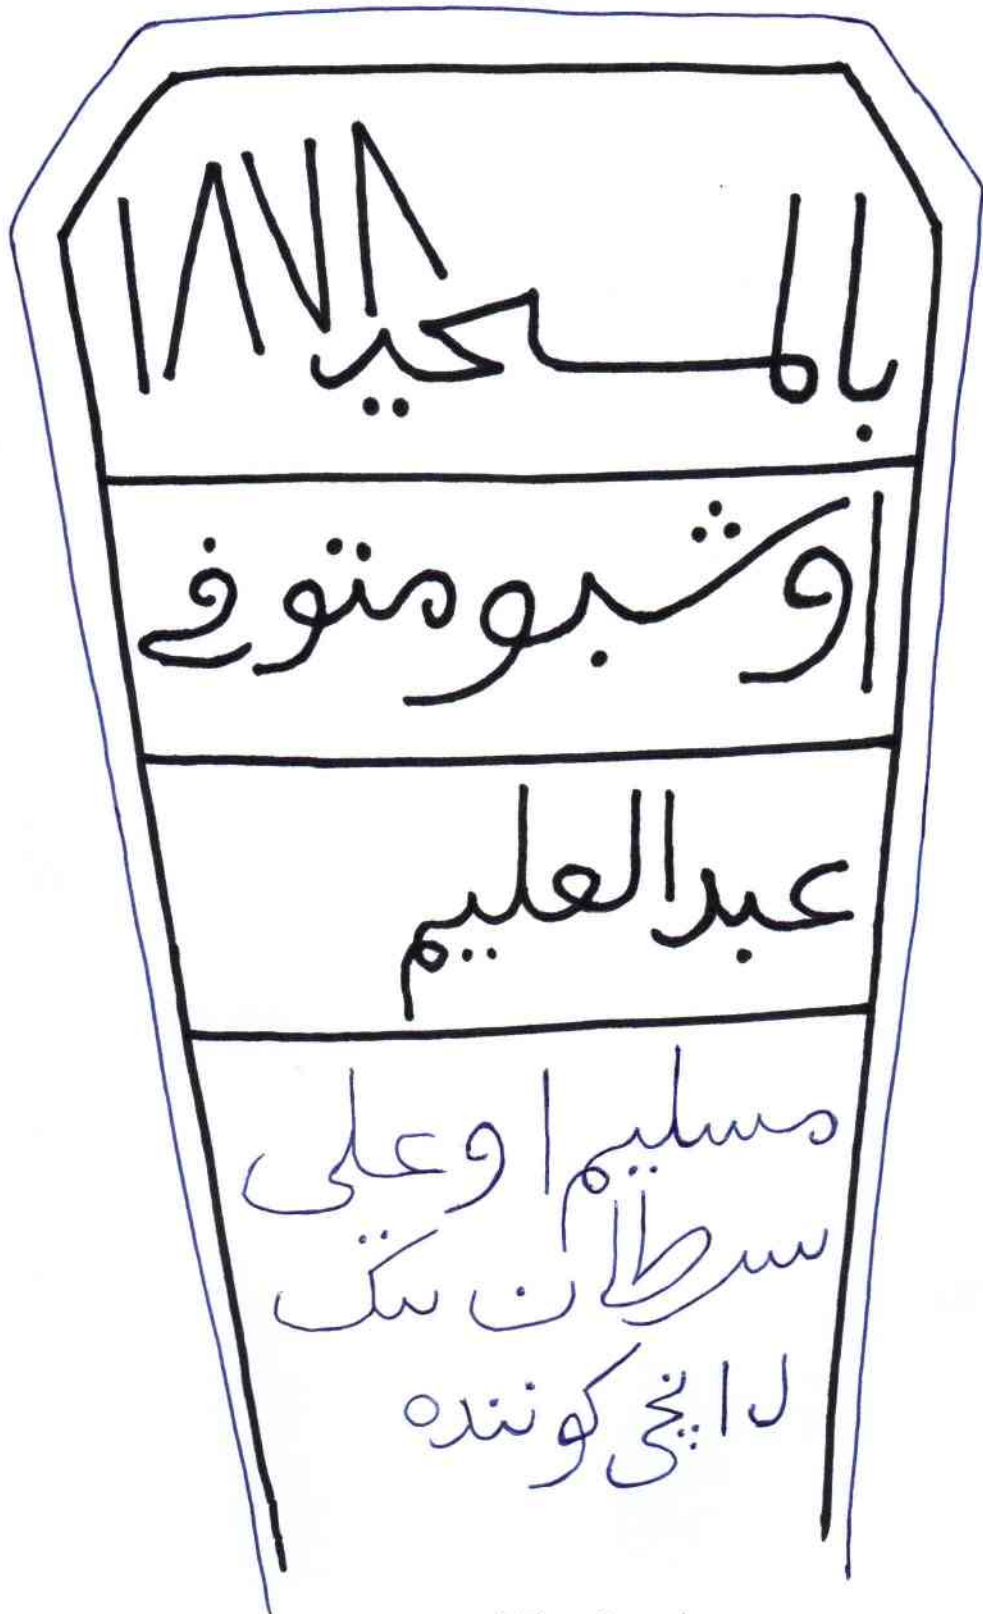 بالمسحيد ١٨٧٨
اوشبو متوفي
عبدالعليم
مسليم اوعلى
سرطان بيك
لا انچى كوننده